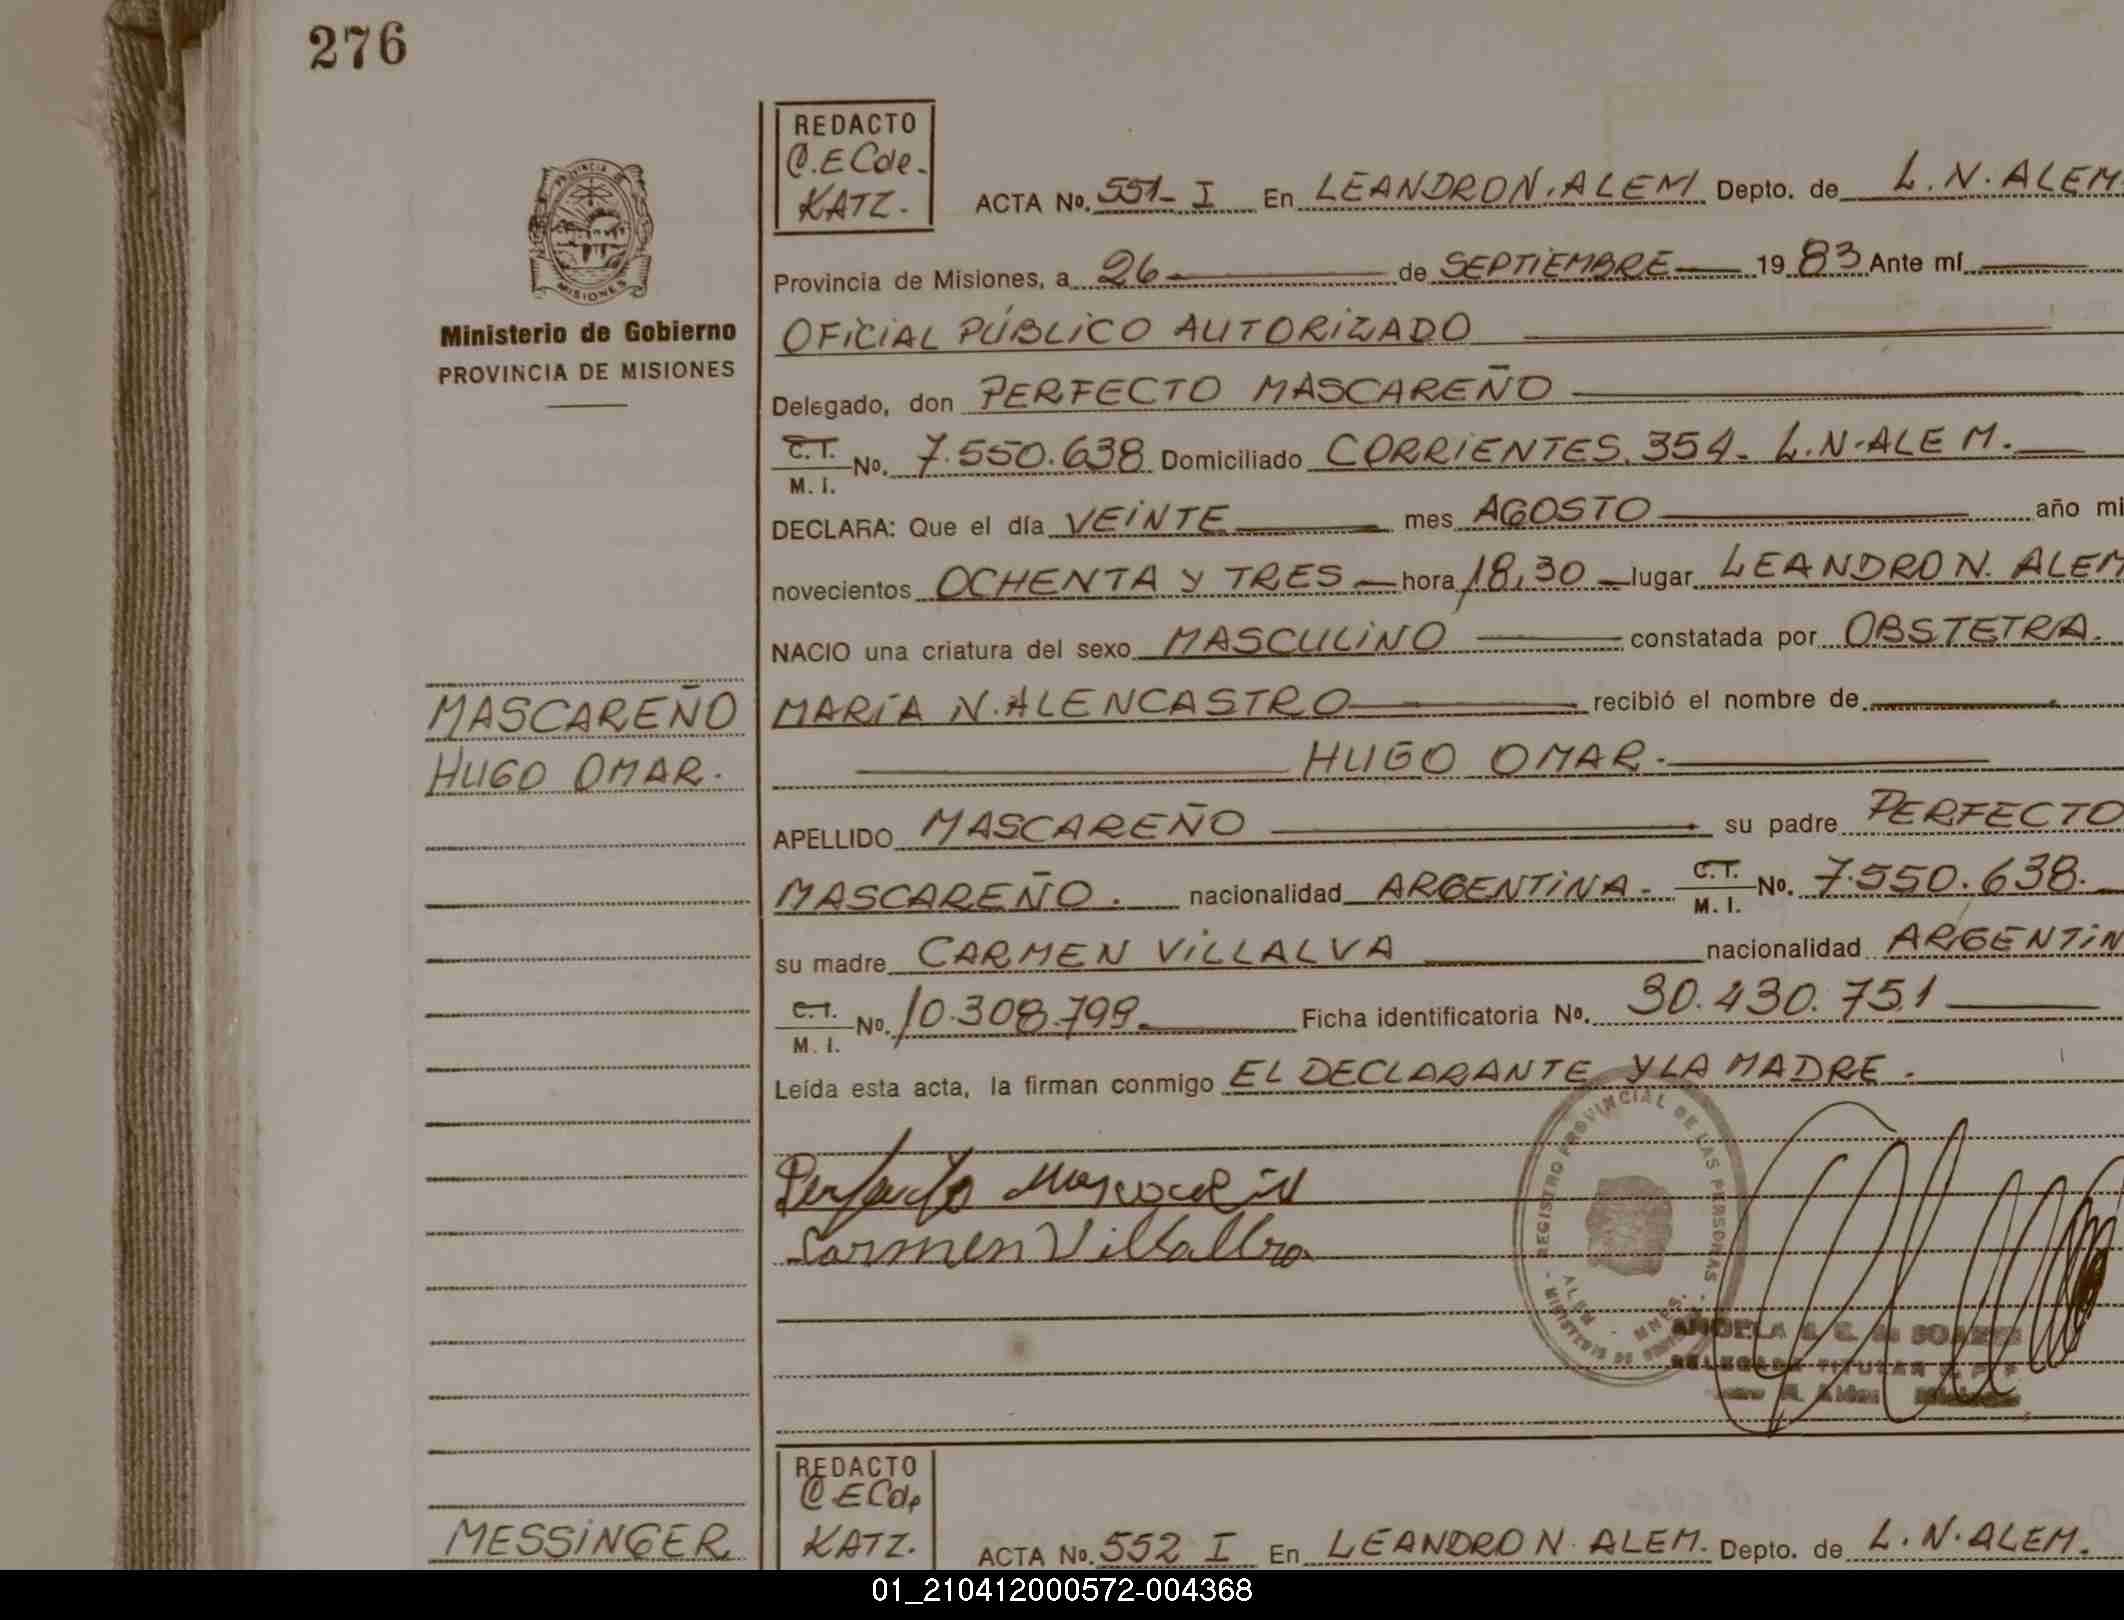 276
REDACTO
C.E C de.
KATZ.
ACTA No. 551- I En LEANDRO N. ALEM Depto. de L. N. ALEM
PROVINCIA DE
MISIONES
Provincia de Misiones, a 26 de SEPTIEMBRE 19 83 Ante mí
Ministerio de Gobierno
PROVINCIA DE MISIONES
OFICIAL PÚBLICO AUTORIZADO
Delegado, don PERFECTO MASCAREÑO
C.I.
M. I. No. 7.550.638 Domiciliado CORRIENTES. 354- L.N-ALEM.
DECLARA: Que el día VEINTE mes AGOSTO año mi
novecientos OCHENTA y TRES hora 18,30 lugar LEANDRO N. ALEM
NACIO una criatura del sexo MASCULINO constatada por OBSTETRA.
MASCAREÑO
HUGO OMAR.
MARÍA N. ALENCASTRO recibió el nombre de
HUGO OMAR.
APELLIDO MASCAREÑO su padre PERFECTO
MASCAREÑO. nacionalidad ARGENTINA- C.I.
M. I. No. 7.550.638.
su madre CARMEN VILLALVA nacionalidad ARGENTIN
C.I.
M. I. No. 10.308.799 Ficha identificatoria No. 30.430.751
Leída esta acta, la firman conmigo EL DECLARANTE Y LA MADRE.
Perfecto Mascareño
Carmen Villalba
REGISTRO PROVINCIAL DE LAS PERSONAS
ALEM
MNES.
ANGELA S. C. de SOAREZ
DELEGADA TITULAR
MESSINGER
REDACTO
C E C de
KATZ.
ACTA No. 552 I En LEANDRO N. ALEM. Depto. de L. N. ALEM.
01_210412000572-004368